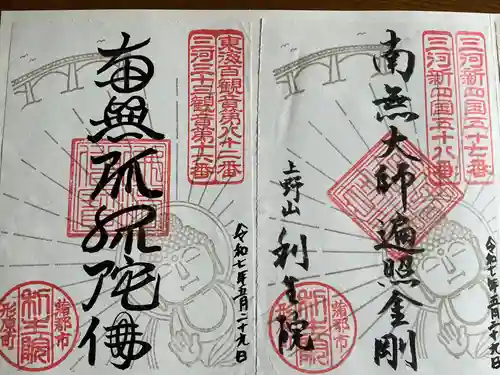 三河新四国五十七番
三河新四国五十八番
南無大師遍照金剛
上野山
利生院
令和七年五月二十九日
利生院
蒲郡市
形原町
東海百観音第八十一番
三河三十三観音第十六番
南無阿弥陀佛
令和七年五月二十九日
利生院
蒲郡市
形原町